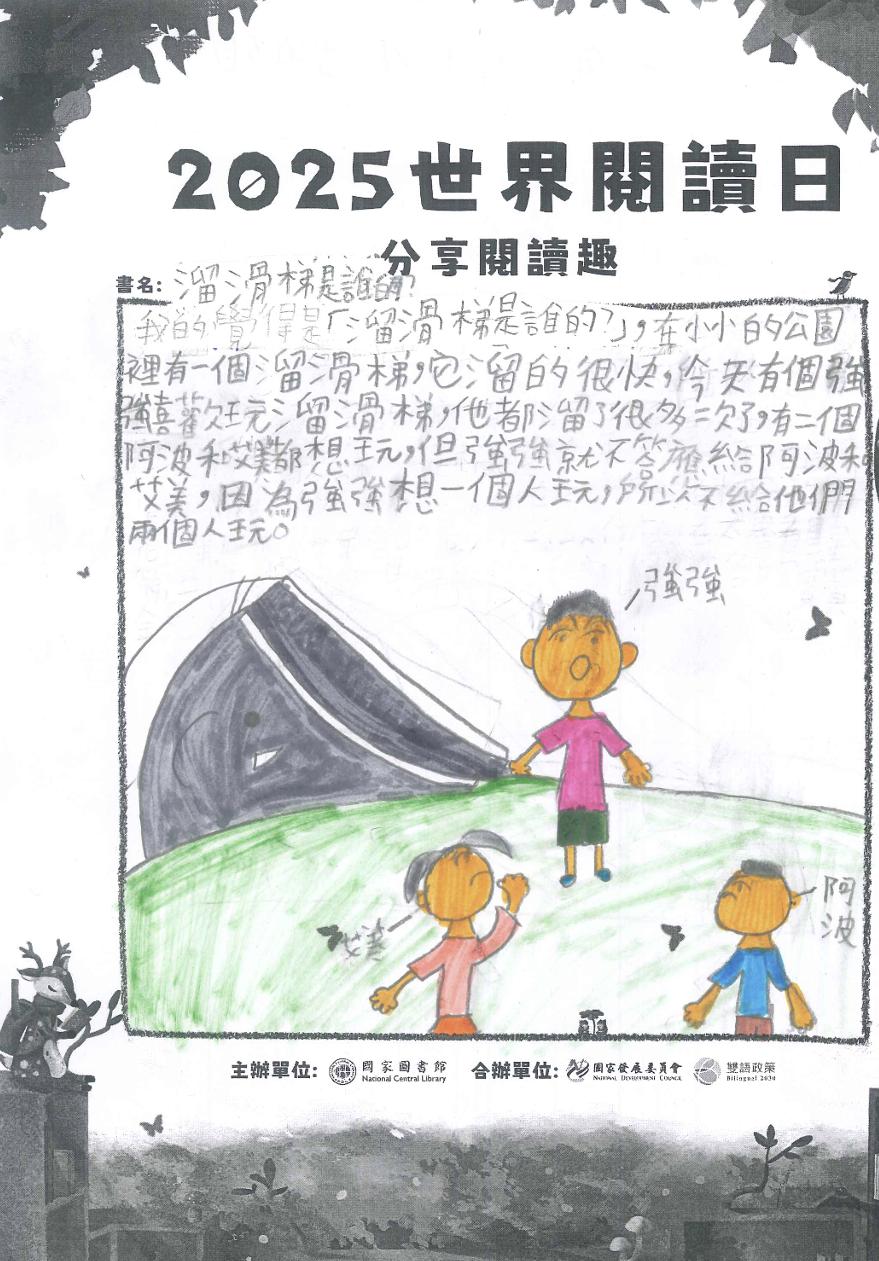 2025世界閱讀日
分享閱讀趣
書名: 溜滑梯是誰的?
我的覺得是「溜滑梯是誰的?」,在小小的公園
裡有一個溜滑梯,它溜的很快,今天有個強
強喜歡玩溜滑梯,他都溜了很多次了,有二個
阿波和艾美都想玩,但強強就不答應給阿波和
艾美,因為強強想一個人玩,所以不給他們
兩個人玩。
強強
阿波
艾美
主辦單位: 國家圖書館 National Central Library 合辦單位: 國家發展委員會 National Development Council 雙語政策 Bilingual 2030